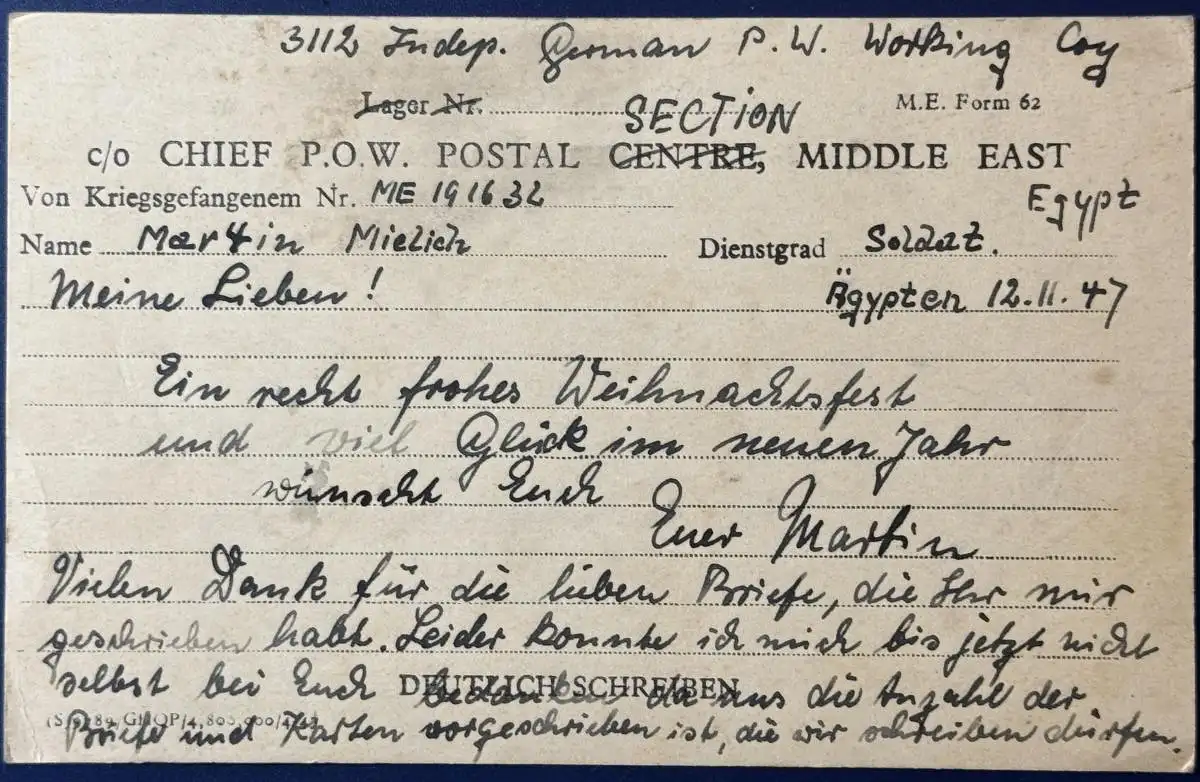 3112 Indep. German P.W. Working Coy
Lager Nr. M.E. Form 62
SECTION
c/o CHIEF P.O.W. POSTAL CENTRE, MIDDLE EAST
Egypt
Von Kriegsgefangenem Nr. ME 191632
Name Martin Mielich Dienstgrad Soldat.
Meine Lieben! Ägypten 12.11.47
Ein recht frohes Weihnachtsfest
und viel Glück im neuen Jahr
wünscht Euch
Euer Martin
Vielen Dank für die lieben Briefe, die Ihr mir
geschrieben habt. Leider konnte ich mich bis jetzt nicht
selbst bei Euch bedanken da uns die Anzahl der
DEUTLICH SCHREIBEN
Briefe und Karten vorgeschrieben ist, die wir schreiben dürfen.